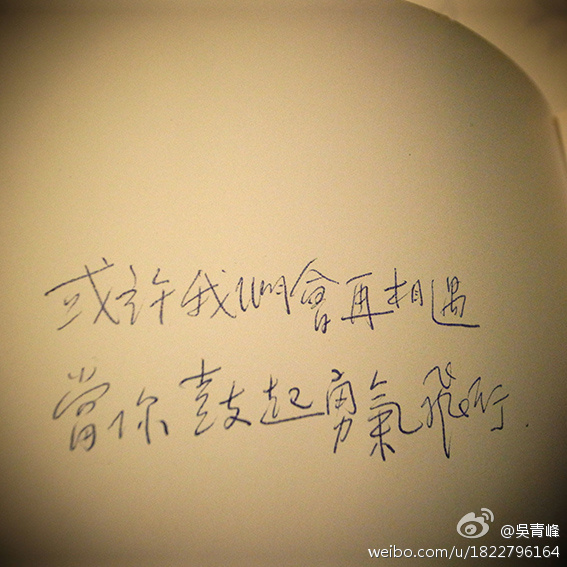 或許我們會再相遇
當你鼓起勇氣飛行.
@吳青峰
weibo.com/u/1822796164